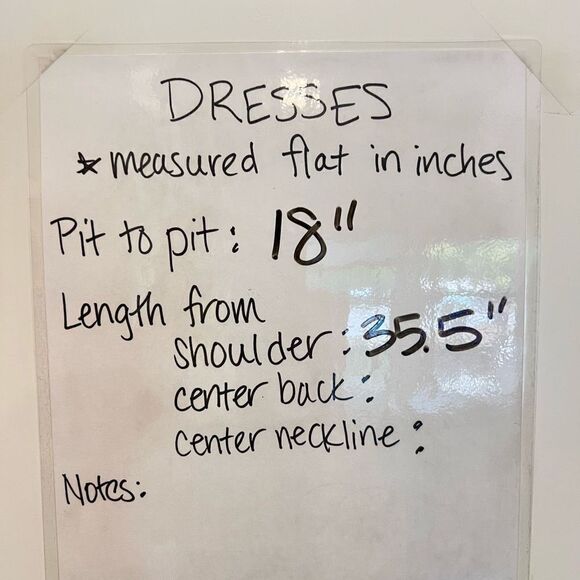 DRESSES
* measured flat in inches
Pit to pit: 18"
Length from
shoulder: 35.5"
center back:
center neckline:
Notes: